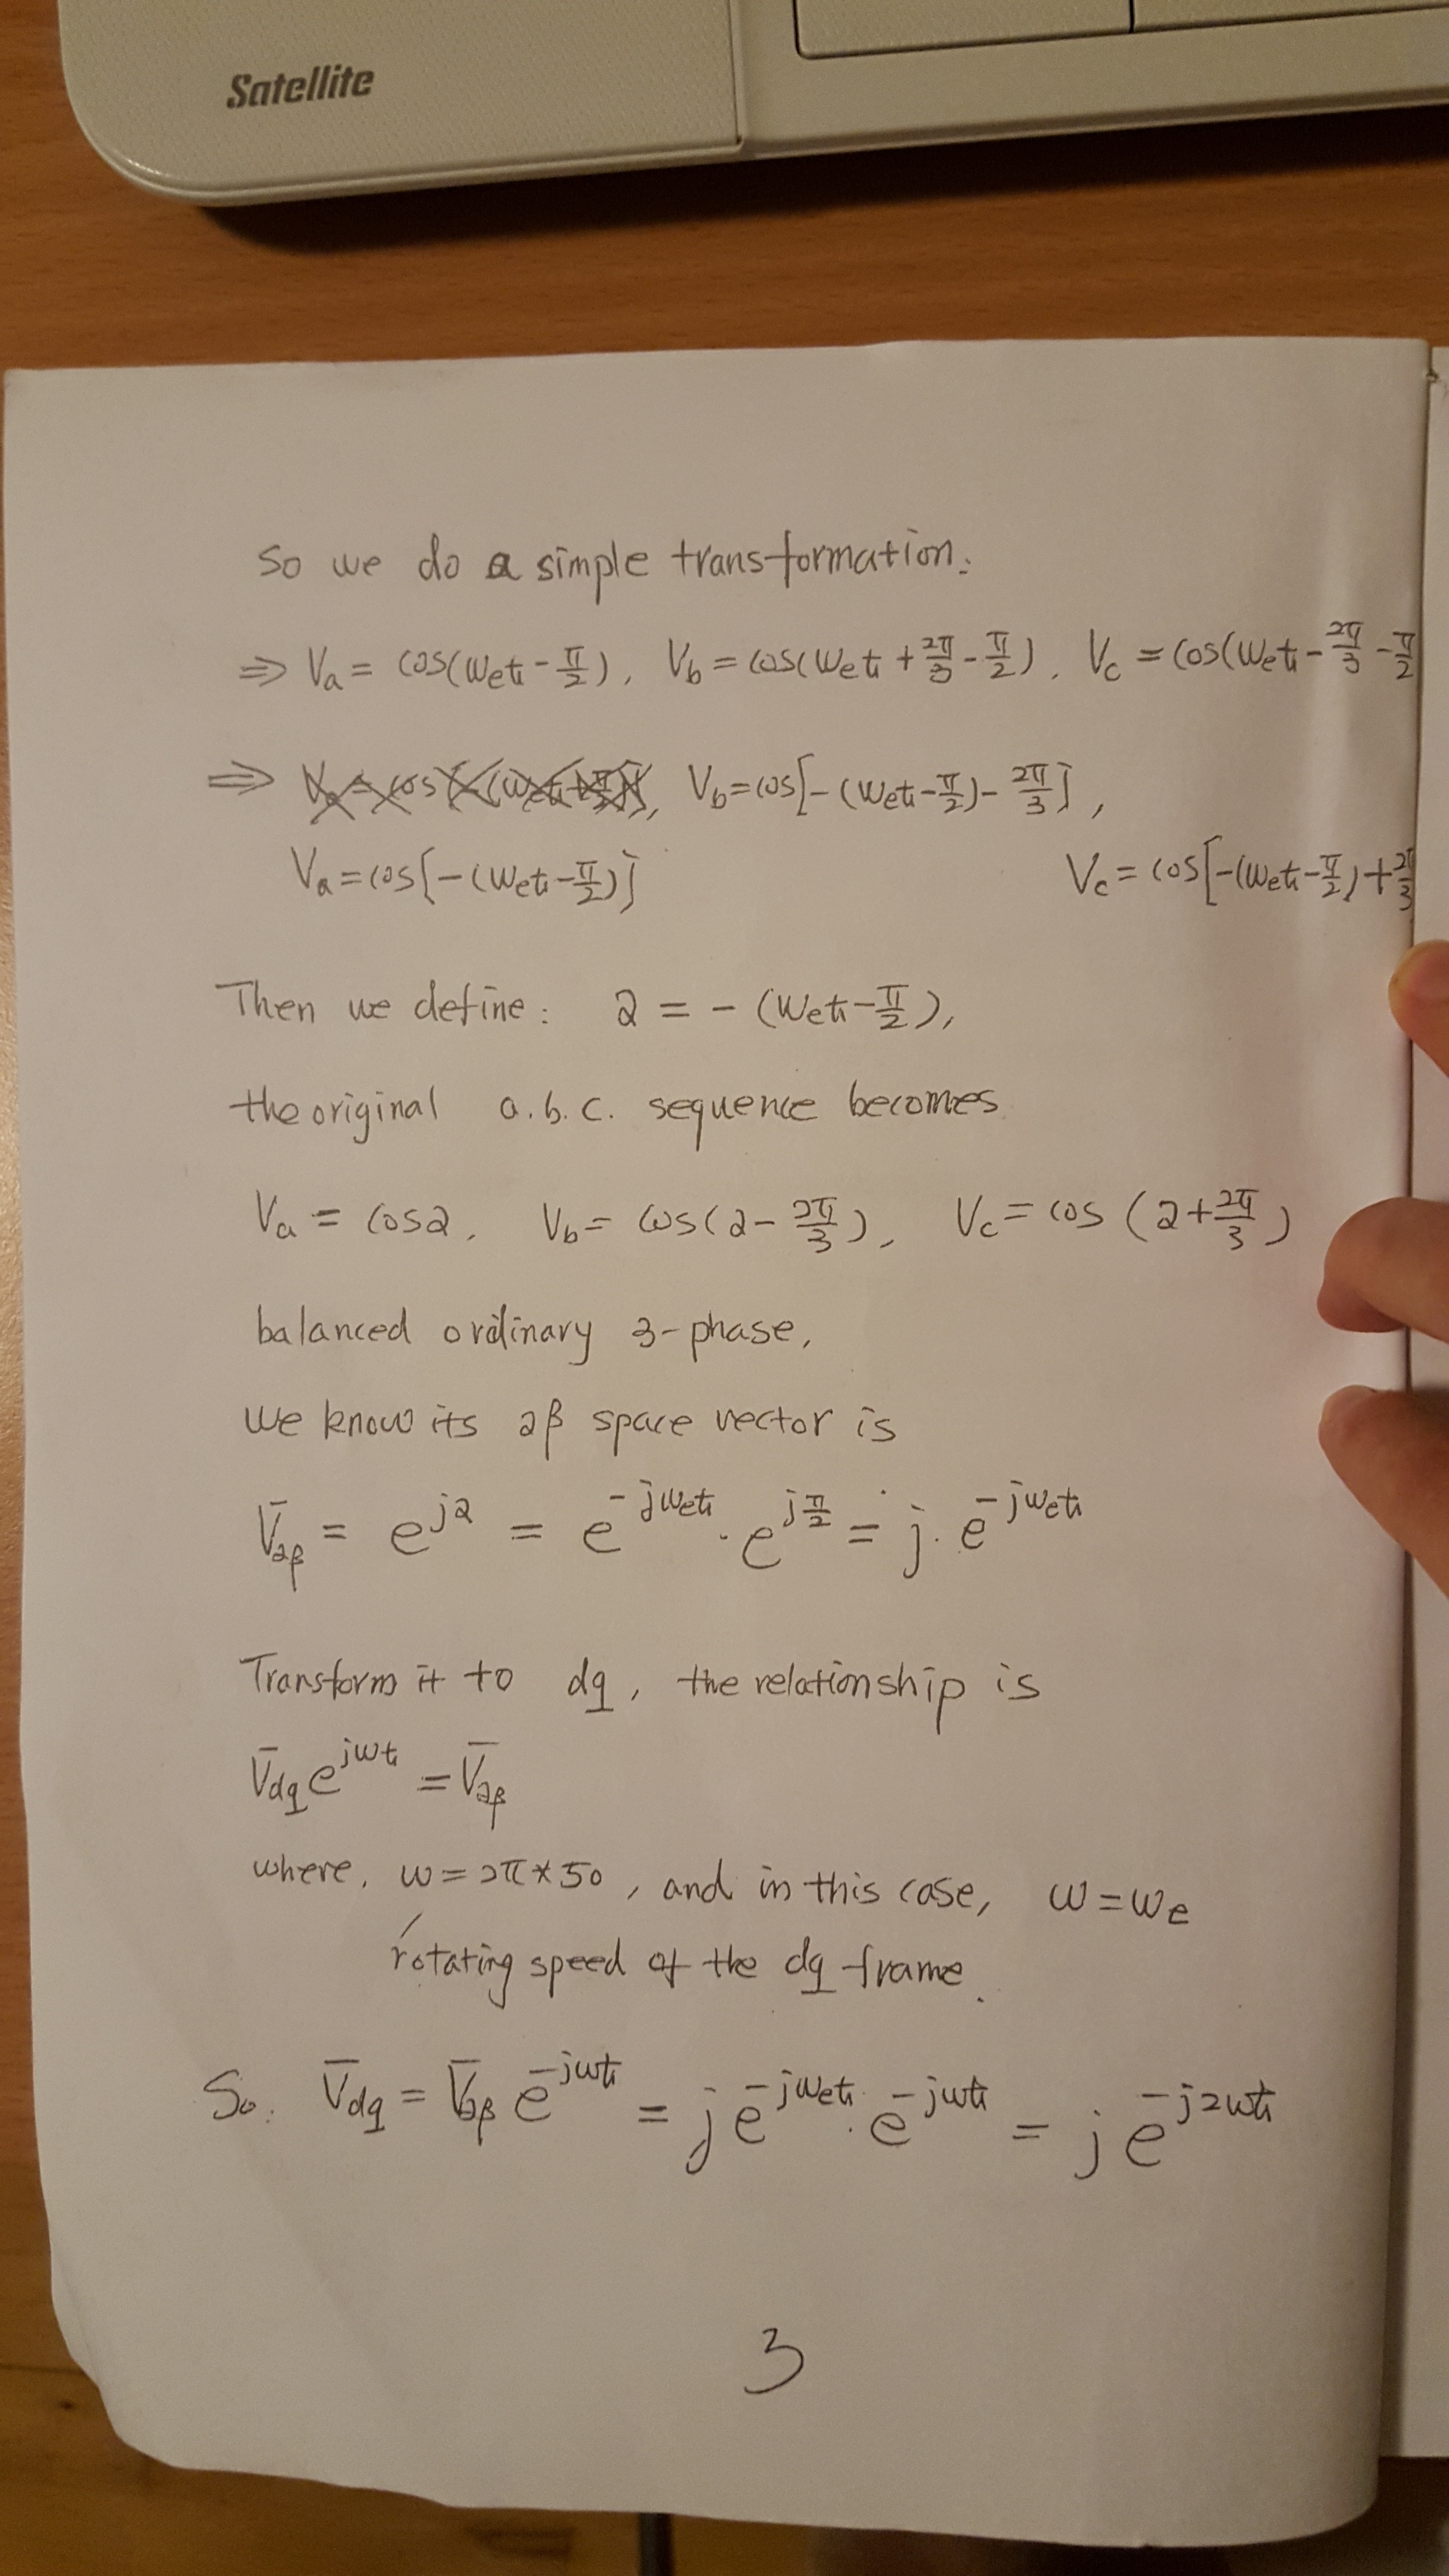 Satellite
So we do a simple transformation:
⇒ Va = cos(ωet - π/2), Vb = cos(ωet + 2π/3 - π/2), Vc = cos(ωet - 2π/3 - π/2
⇒ Vb = cos[-(ωet - π/2) - 2π/3],
Va = cos[-(ωet - π/2)] Vc = cos[-(ωet - π/2) + 2π/3
Then we define: α = -(ωet - π/2),
the original a.b.c. sequence becomes
Va = cosα, Vb = cos(α - 2π/3), Vc = cos(α + 2π/3)
balanced ordinary 3-phase,
we know its αβ space vector is
V̄αβ = e^jα = e^-jωet · e^jπ/2 = j · e^-jωet
Transform it to dq, the relationship is
V̄dq e^jωt = V̄αβ
where, ω = 2π*50, and in this case, ω = ωe
rotating speed of the dq frame.
So: V̄dq = V̄αβ e^-jωt = j e^-jωet · e^-jωt = j e^-j2ωt
3